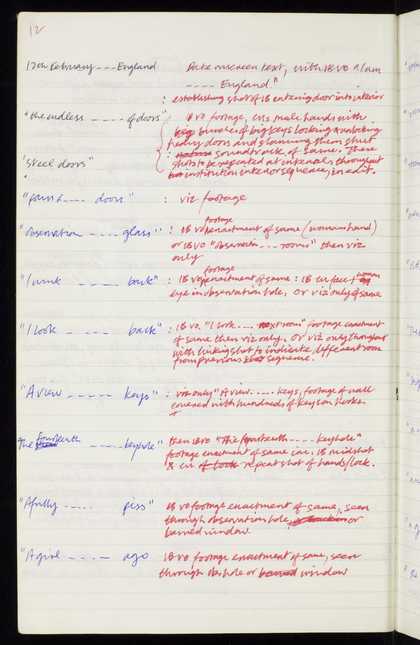 12
12th February --- England Date onscreen text, with IB VO "I am
---- England"
: establishing shot of IB entering door into interior
"the endless --- of doors" IB VO footage, cus male hands with
big bunches of big keys locking & unlocking
heavy doors and slamming them shut
: soundtrack of same. These
"steel doors" shots to be repeated at intervals throughout
" institution interior sequence, in edit.
"found --- doors" : viz footage
"observation ---- glass" : IB VO footage enactment of same (woman hand)
or IB VO "observation --- rooms" then viz
only
"I wink ---- back" : IB VO footage enactment of same : IB cu face + woman
eye in observation hole. Or viz only of same
"I look ----- back" : IB VO. "I look --- next room" footage enactment
of same then viz only. Or viz only throughout
with linking shot to indicate different room
from previous sequence.
"A view ----- keys" : viz only "A view ---- keys, footage of wall
covered with hundreds of keys on hooks.
The fourteenth ---- keyhole" then IB VO "The fourteenth ---- keyhole"
footage enactment of same cu. IB midshot
& cu of lock repeat shot of hands/lock.
"A fully ----- piss" IB VO footage enactment of same, seen
through observation hole, or
barred window
"A girl ---- ago IB VO footage enactment of same, seen
through obs hole or barred window